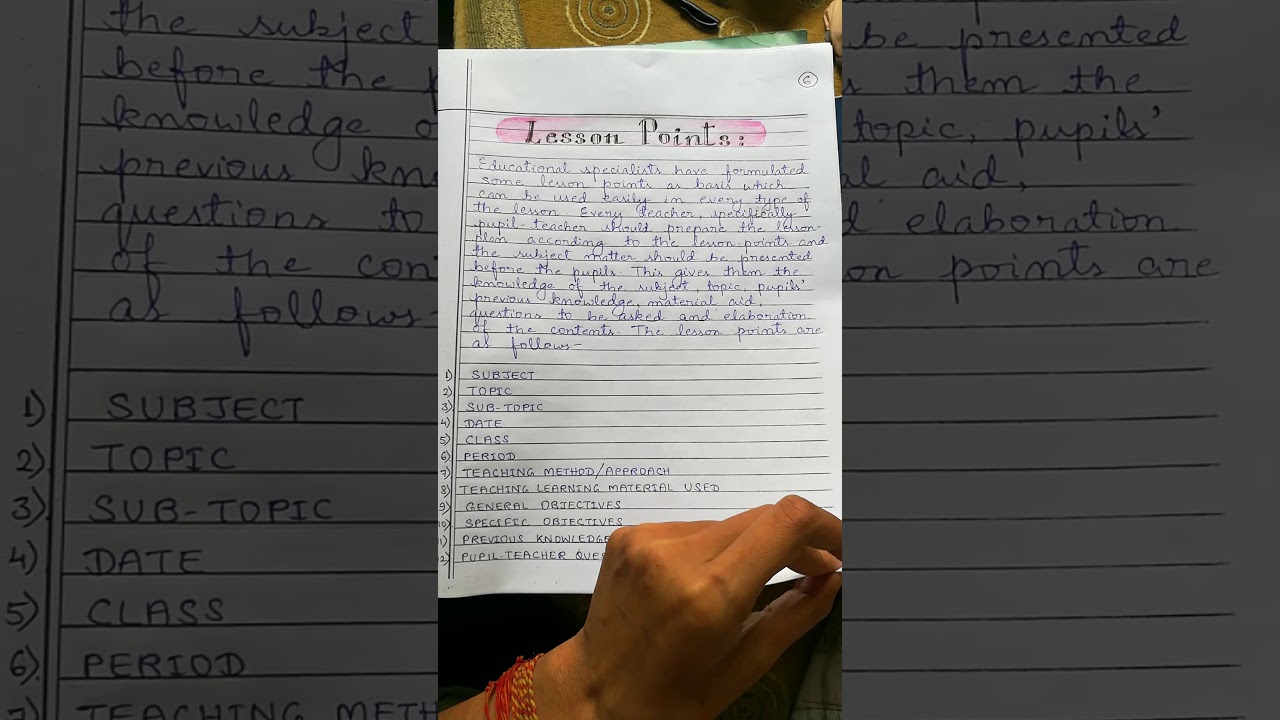 6
Lesson Points:
Educational specialists have formulated
some lesson points as basis which
can be used easily in every type of
the lesson. Every teacher, specifically
pupil-teacher should prepare the lesson-
plan according to the lesson-points and
the subject matter should be presented
before the pupils. This gives them the
knowledge of the subject, topic, pupils'
previous knowledge, material aid,
questions to be asked and elaboration
of the contents. The lesson points are
as follows-
1) SUBJECT
2) TOPIC
3) SUB-TOPIC
4) DATE
5) CLASS
6) PERIOD
7) TEACHING METHOD/APPROACH
8) TEACHING LEARNING MATERIAL USED
9) GENERAL OBJECTIVES
10) SPECIFIC OBJECTIVES
11) PREVIOUS KNOWLEDGE
12) PUPIL-TEACHER